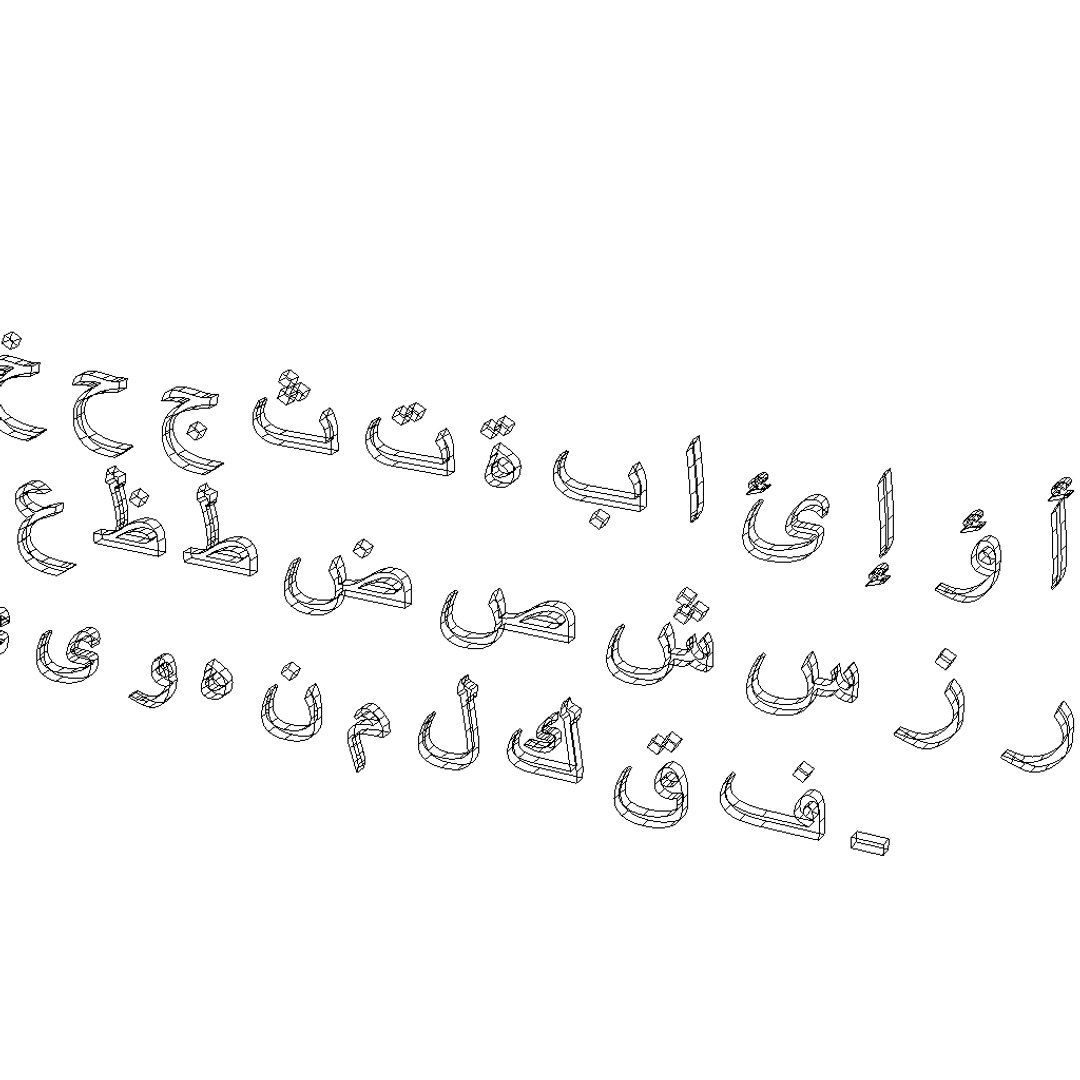 أ ؤ إ ئ ا ب ة ت ث ج ح خ
ر ز س ش ص ض ط ظ ع
ـ ف ق ك ل م ن ه و ى